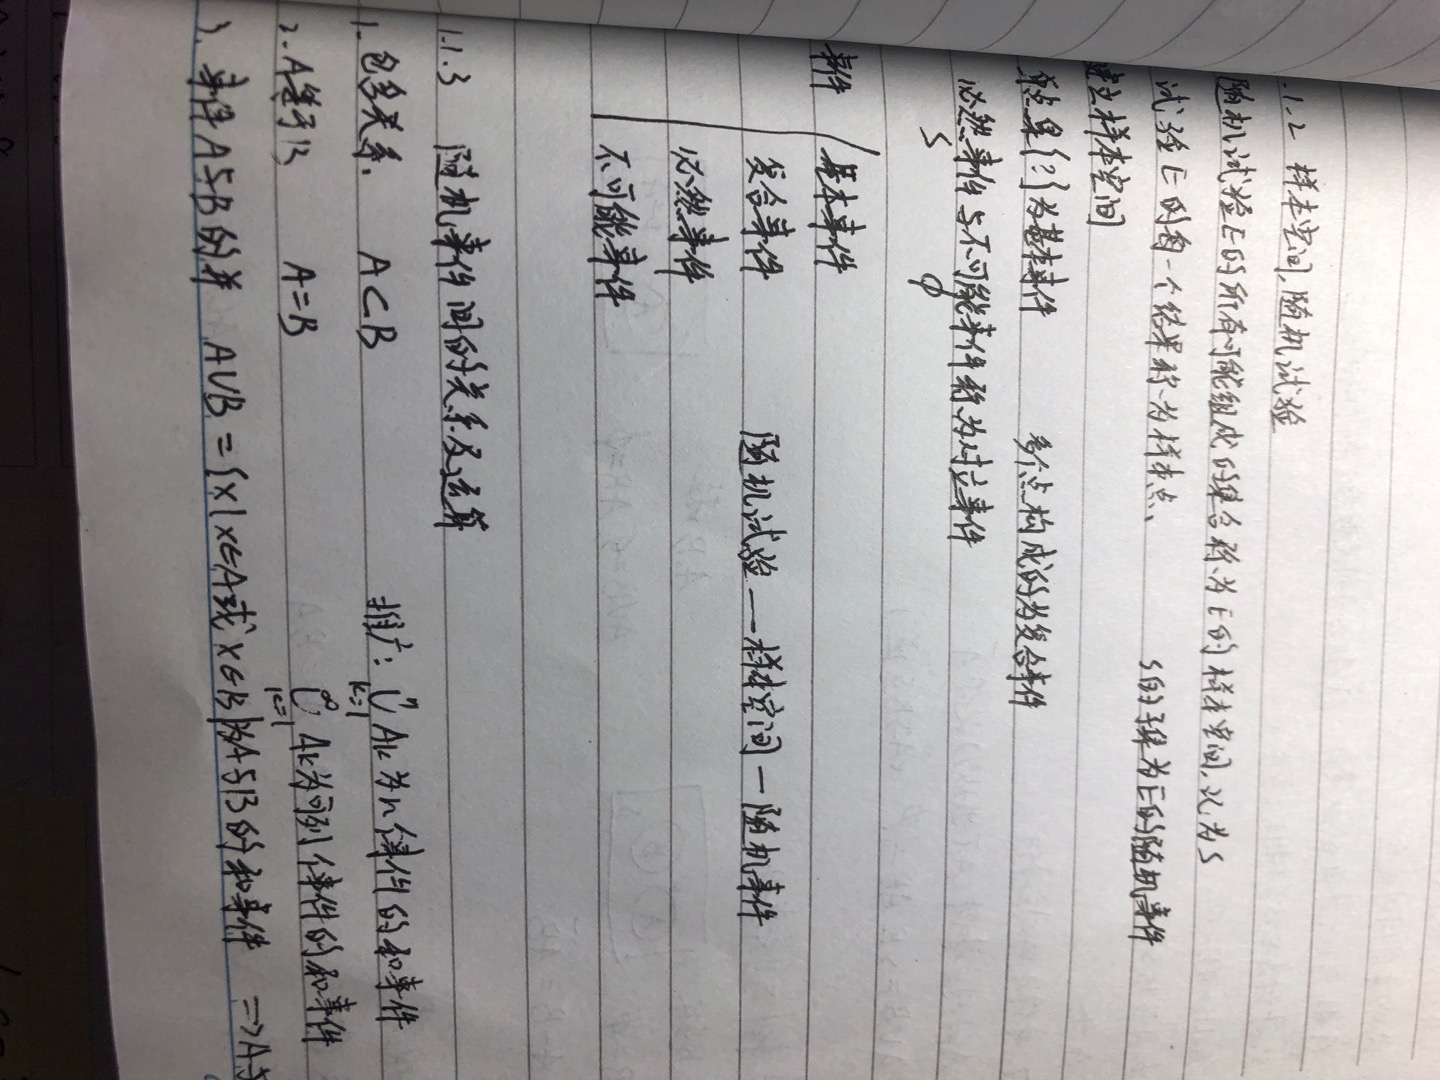 1.1.2 样本空间,随机试验
随机试验E的所有可能组成的集合称为E的样本空间,记为S
试验E的每一个结果称为样本点、 S的子集为E的随机事件
建立样本空间
单点集{?}为基本事件 多个点构成的为复合事件
必然事件与不可能事件称为对立事件
S Φ
事件 基本事件
复合事件 随机试验—样本空间—随机事件
必然事件
不可能事件
1.1.3 随机事件间的关系及运算
1. 包含关系. A⊂B 推广: ⋃ⁿₖ₌₁ Aₖ为n个事件的和事件
2. A等于B A=B ⋃^∞ₖ₌₁ Aₖ为可列个事件的和事件
3. 事件A与B的并 A∪B={x|x∈A或x∈B}为A与B的和事件 =>A与